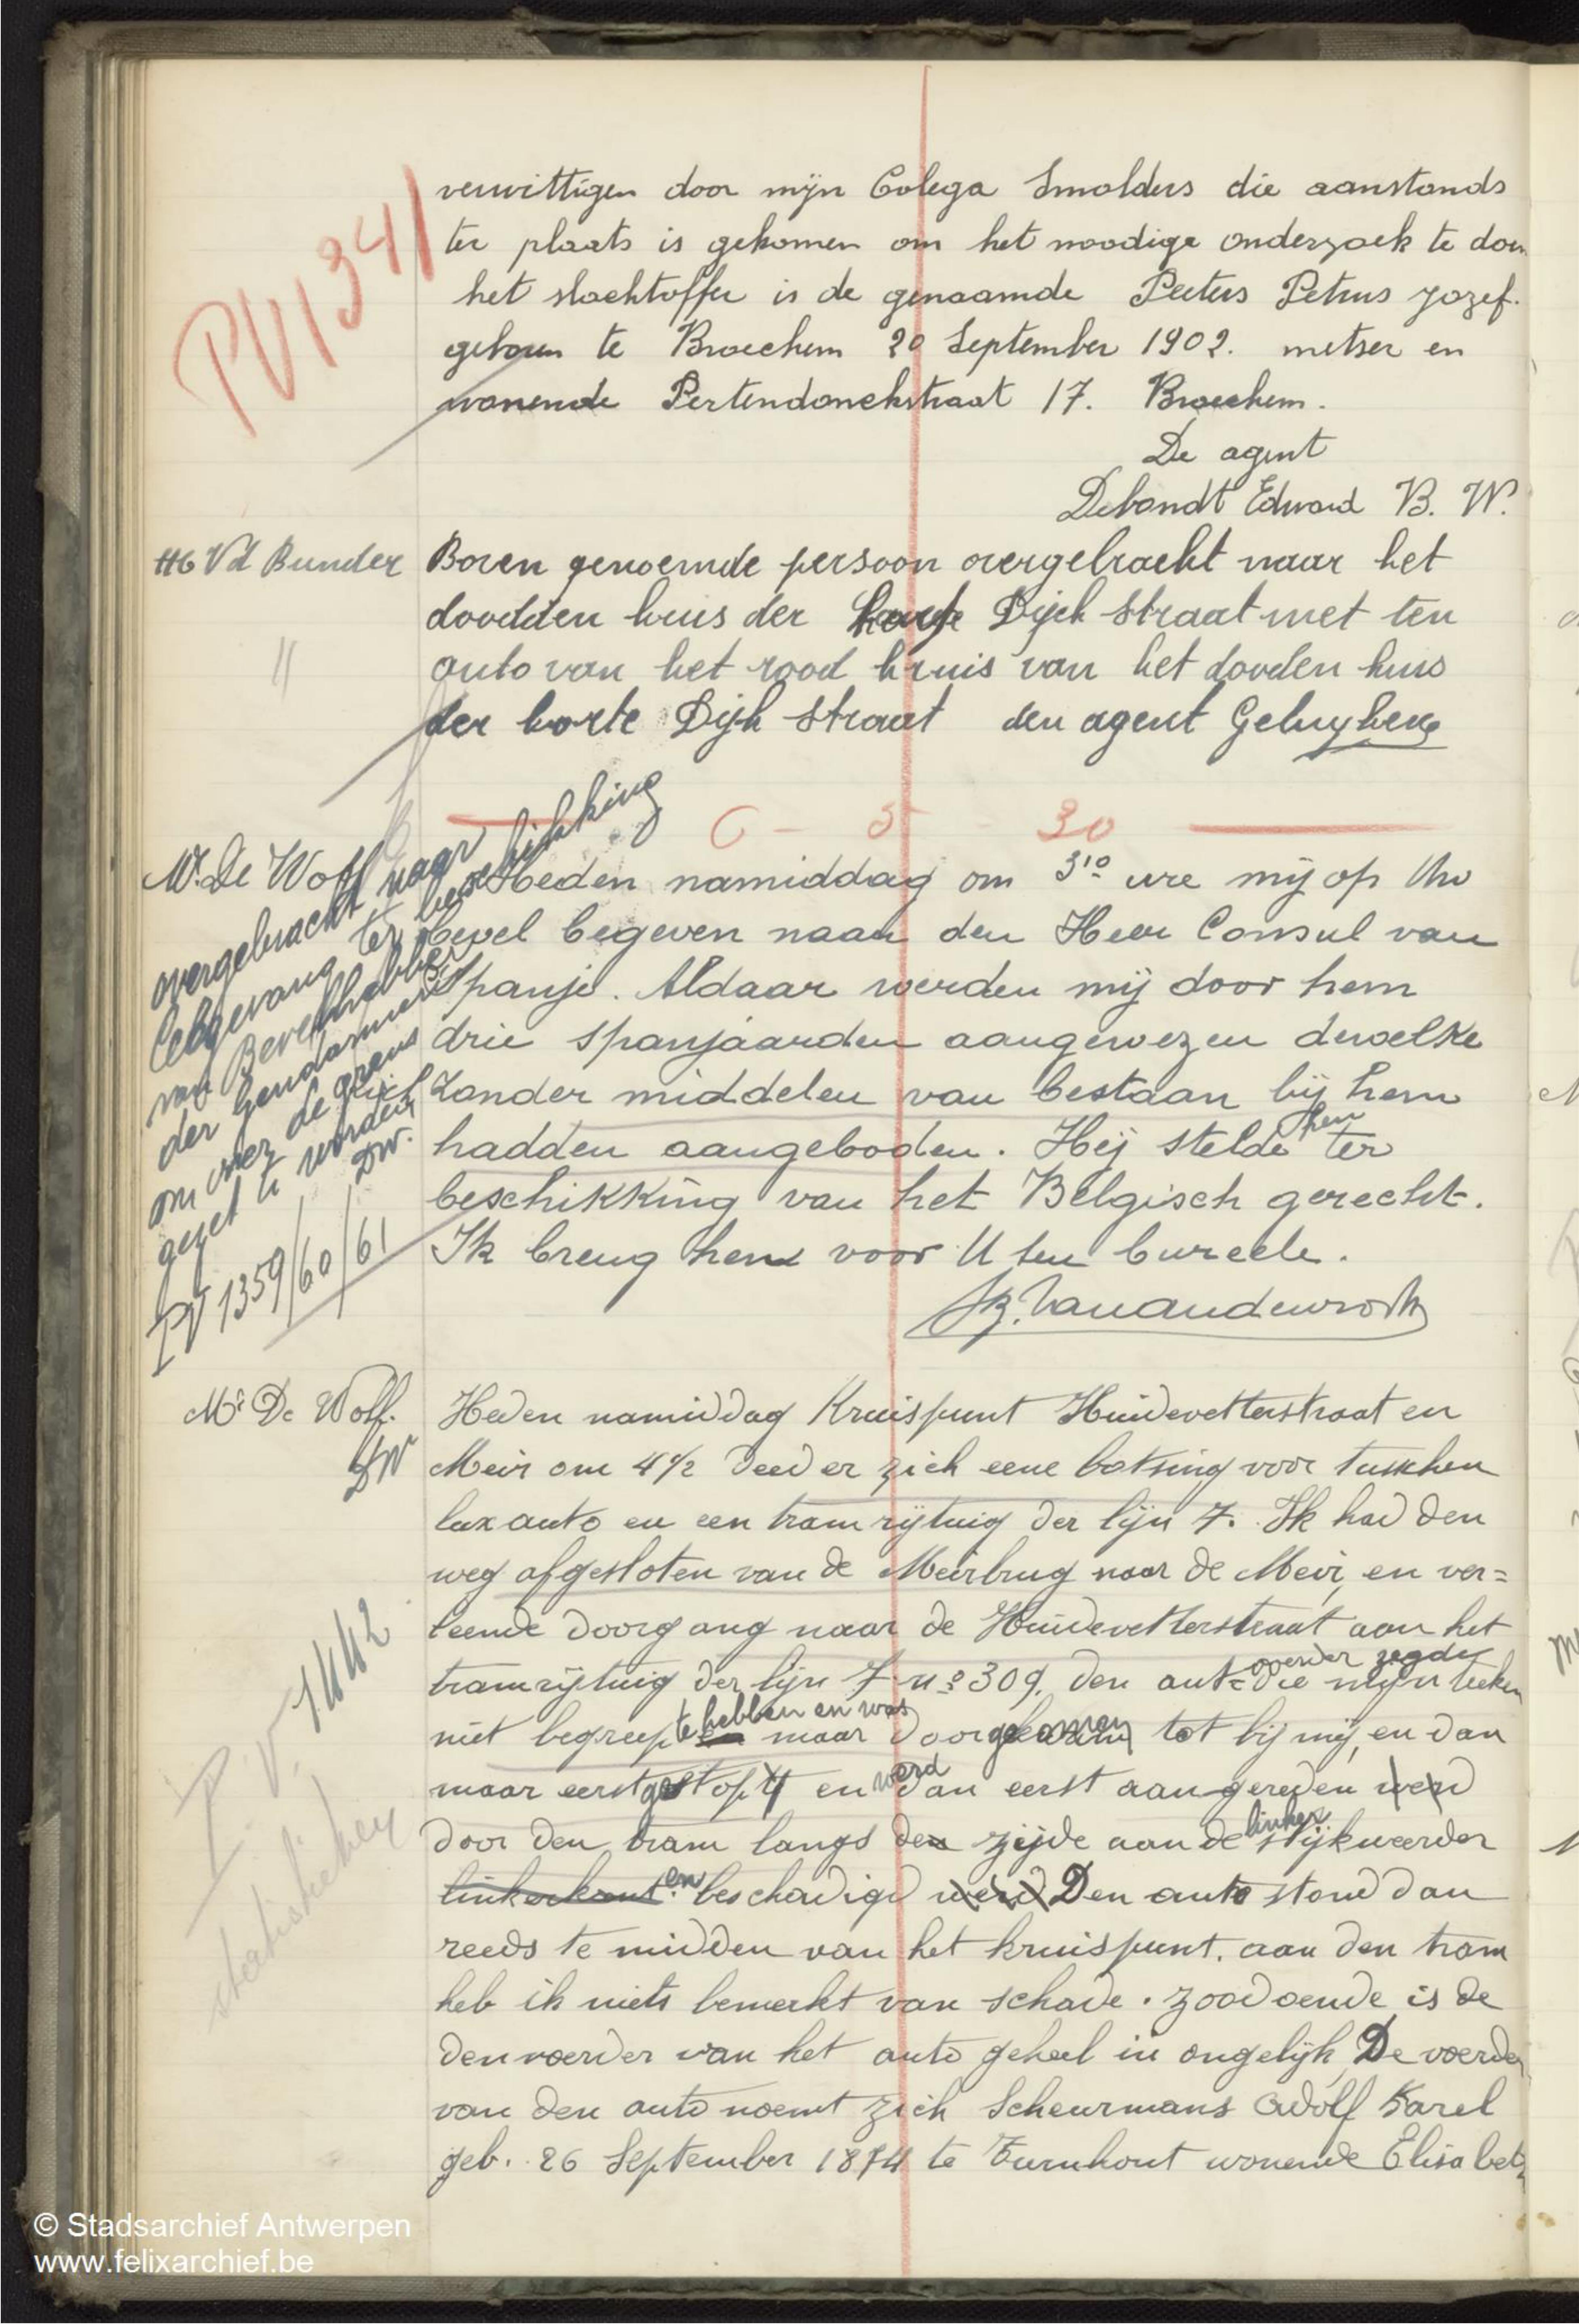 PV 1341
verwittigen door mijn Colega Smolders die aanstonds
ter plaats is gekomen om het noodige onderzoek te doen
het slachtoffer is de genaamde Peeters Petrus Jozef.
geboren te Broechem 20 September 1902. metser en
wonende Pertendonckstraat 17. Broechem.
De agent
Debondt Edward B. W.
H6 Vd Bunder
Boven genoemde persoon overgebracht naar het
doodden huis der korte Dijck straat met ten
auto van het rood kruis van het dooden huis
der korte Dijk straat den agent Geluykens
6 - 5 30
Mr. De Wolf
overgebracht naar
celgevang ter beschikking
van Bevelhebber
der Gendarmerij
om over de grens
gezet te worden
DW.
PV 1359/60/61
Heden namiddag om 3 10 ure mij op Uw
bevel begeven naar den Heer Consul van
Spanje. Aldaar werden mij door hem
drie spanjaarden aangewezen dewelke
zonder middelen van bestaan bij hem
hadden aangeboden. Hij stelde hen ter
beschikking van het Belgisch gerecht.
Ik breng hen voor U ten bureele.
Mr De Wolf.
DW
Heden namiddag Kruispunt Huidevetterstraat en
Meir om 4 1/2 deed er zich eene botsing voor tusschen
lux auto en een tram rijtuig der lijn 7. Ik had den
weg afgesloten van de Meirbrug naar de Meir, en ver=
leende doorgang naar de Huidevetterstraat aan het
tramrijtuig der lijn 7 no 309. den auto voerder zegde die mijn teeken
niet begreep te hebben en was maar doorgekomen tot bij mij, en dan
maar eerst gestopt en werd dan eerst aangereden werd
door den tram langs den zijde aan de linker slijkweerder
linkerkant. en beschadigd werd Den auto stond dan
reeds te midden van het kruispunt. aan den tram
heb ik niets bemerkt van schade. zoodoende is de
den voerder van het auto geheel in ongelijk, De voerder
van den auto noemt zich Scheurmans Adolf Karel
geb. 26 September 1874 te Turnhout wonende Elisabet
P.V. 1442
statistieken
© Stadsarchief Antwerpen
www.felixarchief.be